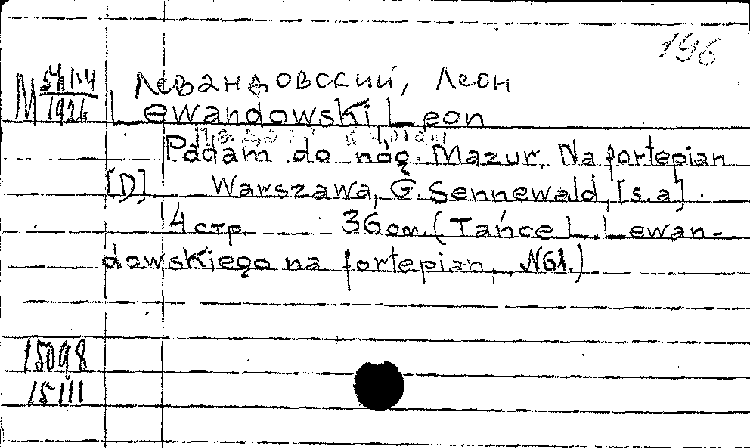 196
Левандовский, Леон
M 54114/1926
Lewandowski Leon
Padam do nóg. Mazur. Na fortepian
[D]. Warszawa, G. Sennewald, [s.a.]
4 стр. 36 см. (Tańce L. Lewan-
dowskiego na fortepian,
15098
15111